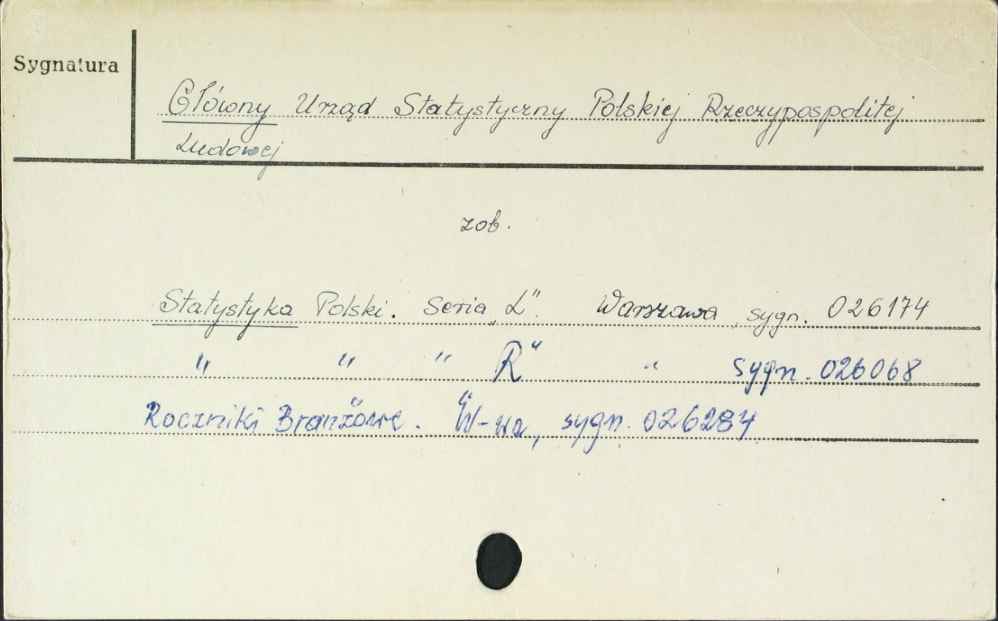 Sygnatura
Główny Urząd Statystyczny Polskiej Rzeczypospolitej
Ludowej
zob.
Statystyka Polski. Seria „L". Warszawa, sygn. 026174
" " " R" " sygn. 026068
Roczniki Branżowe. W-wa, sygn. 026284